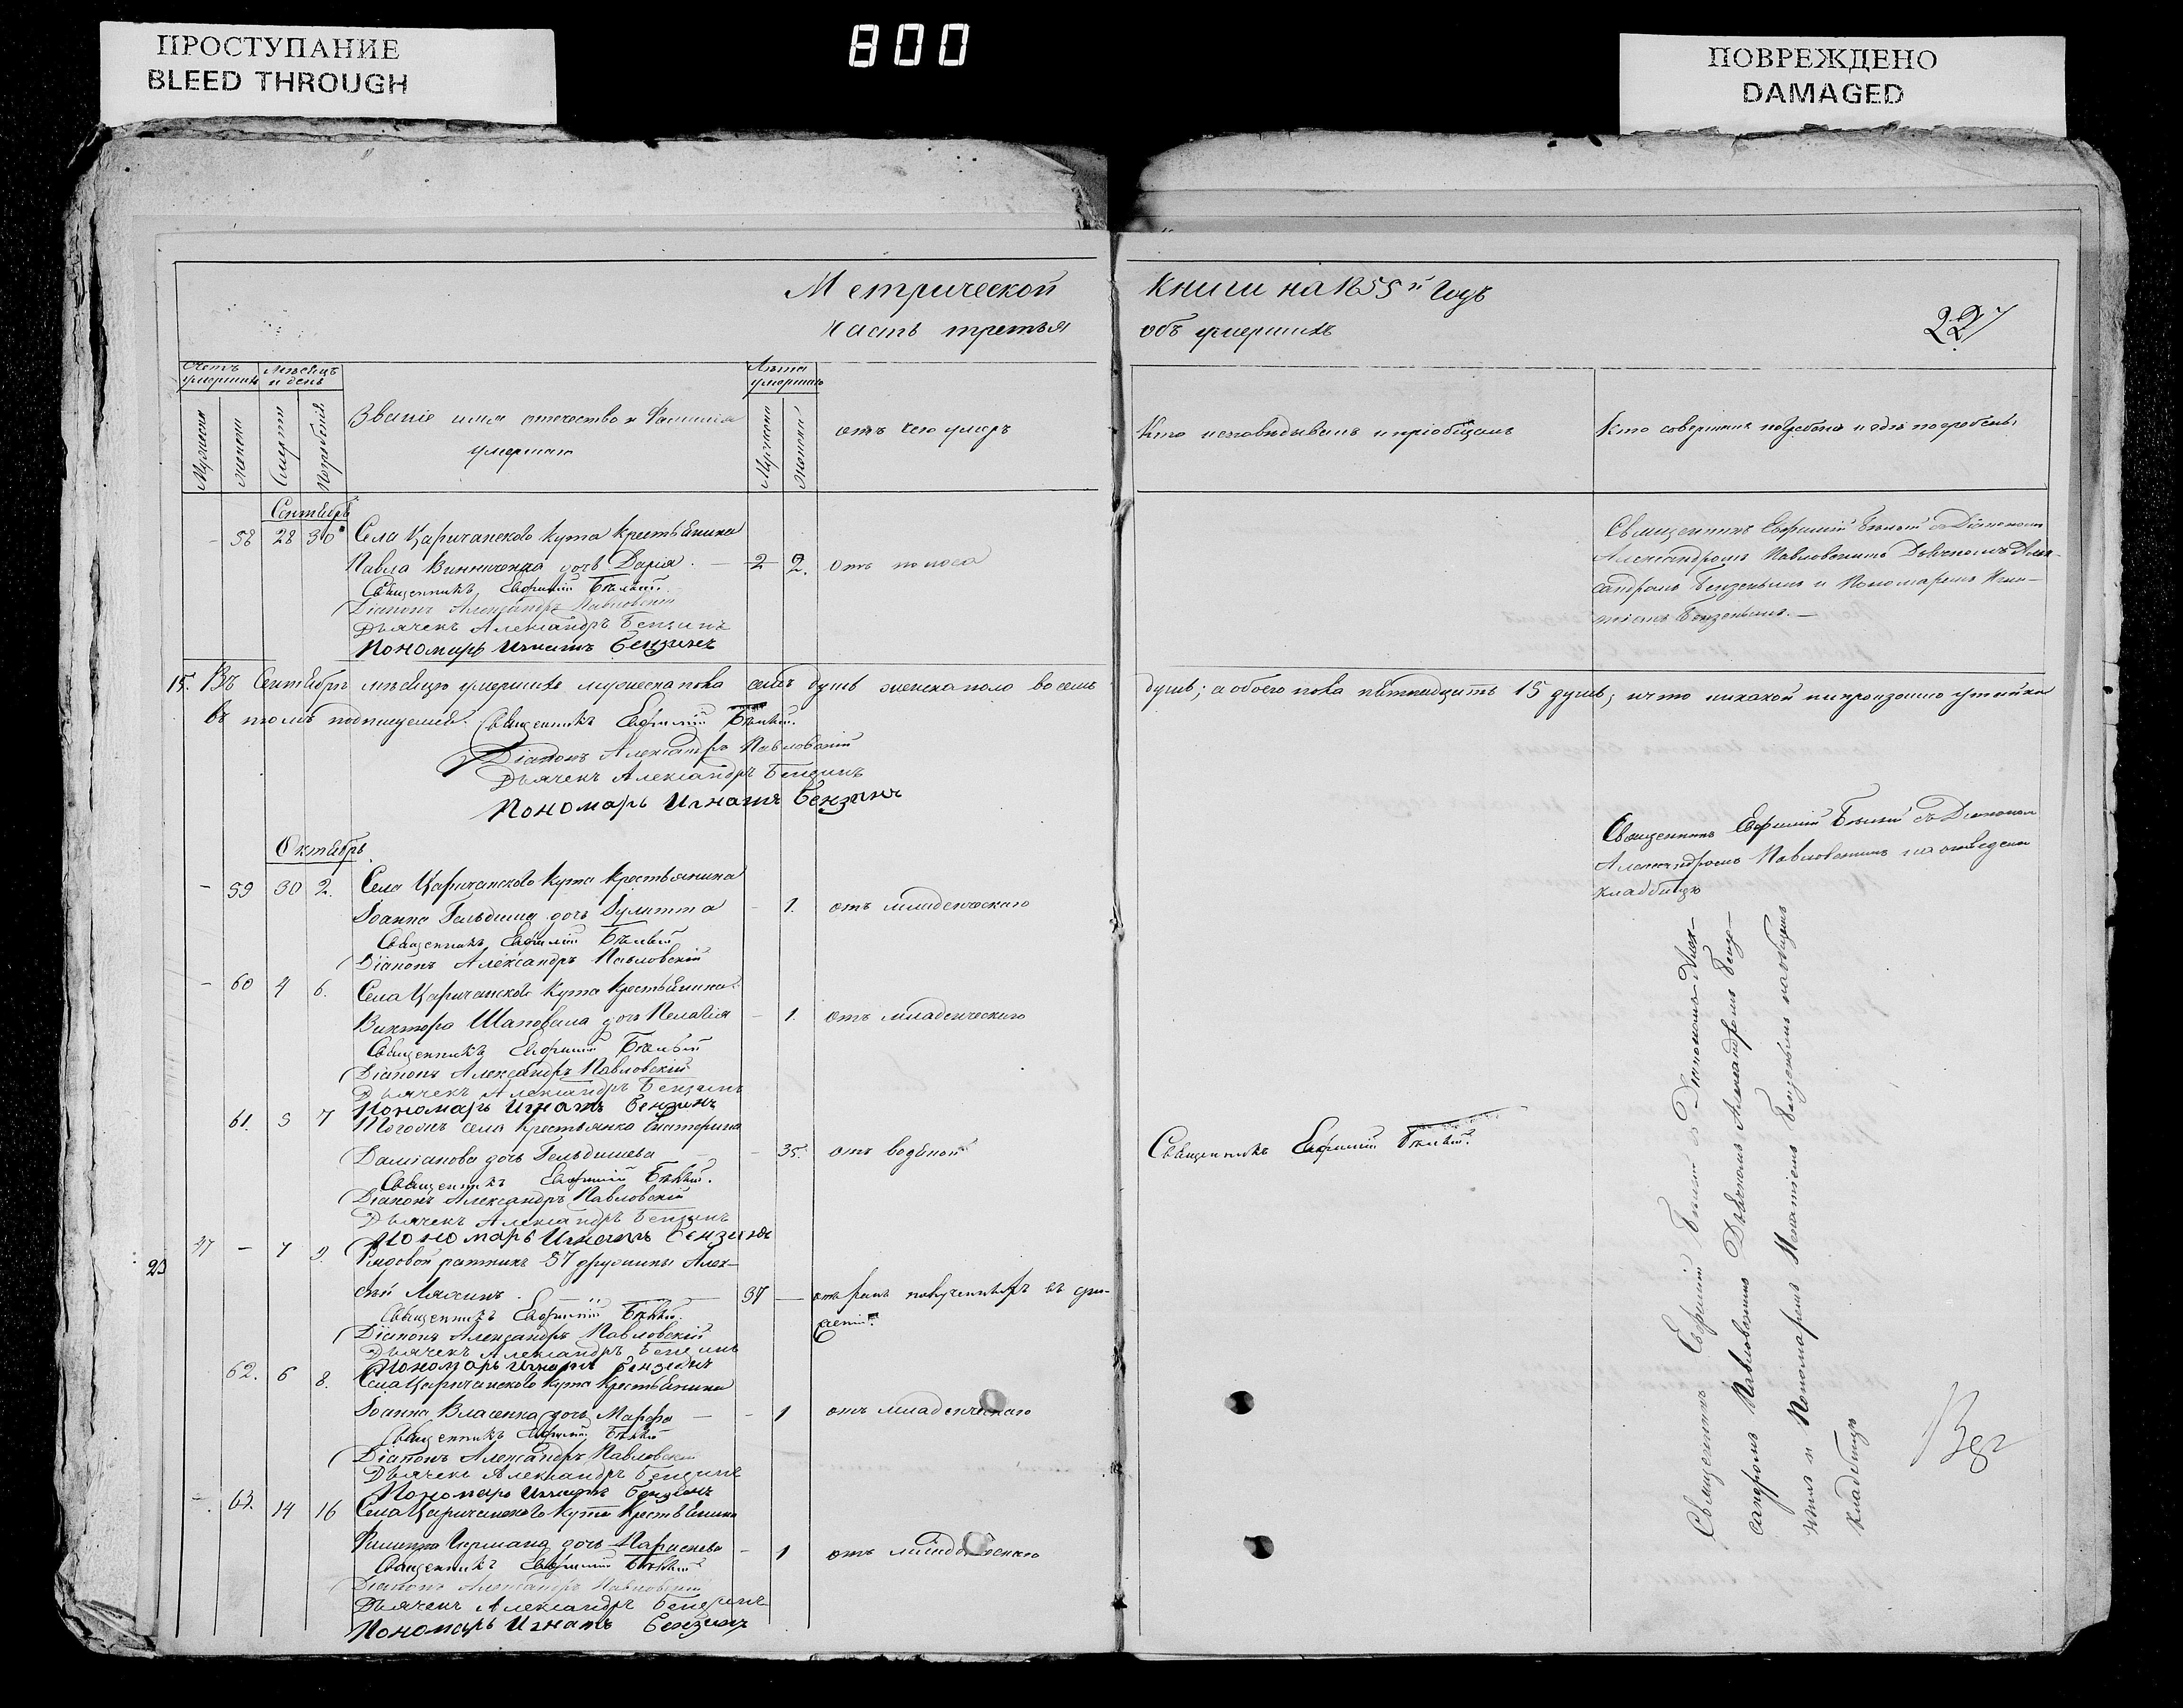 ПРОСТУПАНИЕ
BLEED THROUGH
800
ПОВРЕЖДЕНО
DAMAGED
Метрической книги на 1855й годъ
часть третья объ умершихъ
227
Счетъ умершихъ
Мѣсяцъ и день
Лѣта умершаго
Мужеска
женска
Смерти
Погребенія
Званіе имя отечество и Фамилія
умершаго
Мужскаго
Женскаго
отъ чего умеръ
Кто исповѣдывалъ и пріобщалъ
Кто совершалъ погребеніе и гдѣ погребены
Сентябрь
- 58 28 30 Села Царичанского Кута крестьянина
Павла Винниченка дочь Дарія. — 2 2. отъ поноса
Священникъ Евфимій Бѣлый.
Діаконъ Александръ Павловскій
Дьячекъ Александръ Бензинъ
Пономарь Игнатъ Бензинъ
Священникъ Евфимій Бѣлый съ Діакономъ
Александромъ Павловскимъ Дьячкомъ Алек-
сандромъ Бензинымъ и Пономаремъ Игна-
тіемъ Бензинымъ. —
15. Въ Сентябрѣ мѣсяцѣ умершихъ мужеска пола семь душъ женска пола восемь душъ; а обоего пола пятнадцать 15 душъ; что никакой не произошло утайки
въ томъ подписуемся. Священникъ Евфимій Бѣлый.
Діаконъ Александръ Павловскій
Дьячекъ Александръ Бензинъ
Пономарь Игнатъ Бензинъ
Октябрь.
- 59 30 2. Села Царичанского Кута крестьянина
Іоанна Гельдиша дочь Іулитта - 1. отъ младенческаго
Священникъ Евфимій Бѣлый
Діаконъ Александръ Павловскій
Священникъ Евфимій Бѣлый съ Діакономъ
Александромъ Павловскимъ на отведенномъ
кладбищѣ
- 60 4 6. Села Царичанского Кута крестьянина
Виктора Шаповала дочь Пелагія - 1. отъ младенческаго
Священникъ Евфимій Бѣлый
Діаконъ Александръ Павловскій
Дьячекъ Александръ Бензинъ
Пономарь Игнатъ Бензинъ
61. 5 7 Тогожъ села крестьянка Екатерина
Даміанова дочь Гельдишева - 35. отъ водяной
Священникъ Евфимій Бѣлый.
Священникъ Евфимій Бѣлый.
Діаконъ Александръ Павловскій
Дьячекъ Александръ Бензинъ
Пономарь Игнатъ Бензинъ
- 7 9. Рядовой ратникъ 57 дружины Алек-
сѣй — 37 — отъ ранъ полученныхъ въ сра-
женіи
Священникъ Евфимій Бѣлый.
Діаконъ Александръ Павловскій
Дьячекъ Александръ Бензинъ
Пономарь Игнатъ Бензинъ
23
62. 6 8. Села Царичанского Кута крестьянина
Іоанна Власенка дочь Марфа — - 1 отъ младенческаго
Священникъ Евфимій Бѣлый
Діаконъ Александръ Павловскій
Дьячекъ Александръ Бензинъ
Пономарь Игнатъ Бензинъ
- 63. 14 16 Села Царичанского Кута крестьянина
дочь Параскева - 1 отъ младенческаго
Священникъ Евфимій Бѣлый
Діаконъ Александръ Павловскій
Дьячекъ Александръ Бензинъ
Пономарь Игнатъ Бензинъ
Священникъ Евфимій Бѣлый съ Діакономъ Алек-
сандромъ Павловскимъ Дьячкомъ Александромъ Бензи-
нымъ и Пономаремъ Игнатіемъ Бензинымъ на общемъ
кладбищѣ